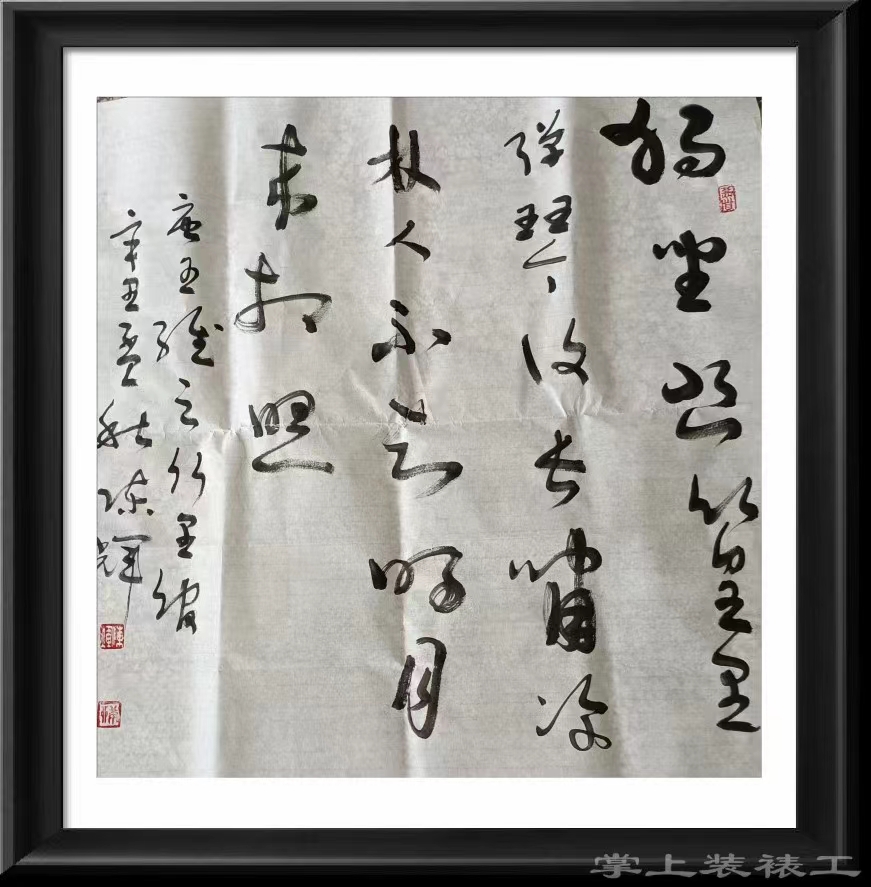 独坐幽篁里
弹琴复长啸深
林人不知明月
来相照
唐王维之竹里馆
辛丑孟秋陈辉
掌上装裱工